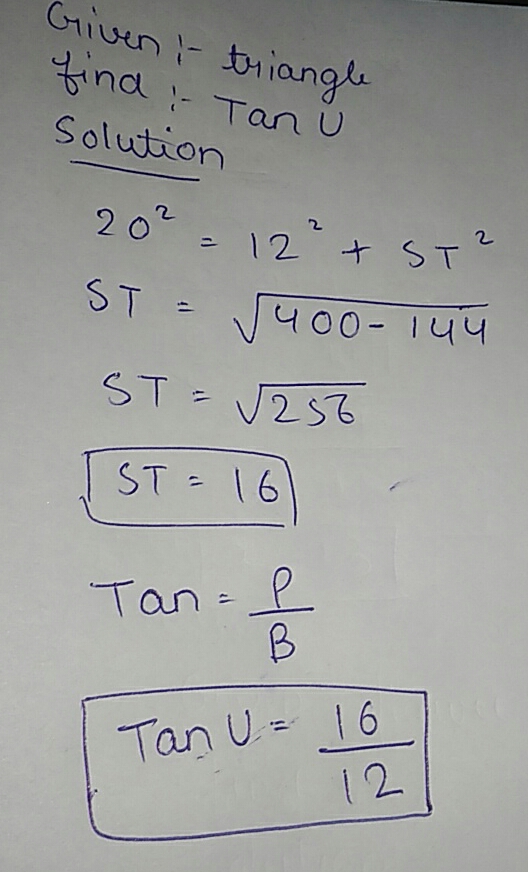 Given :- triangle
find :- Tan U
Solution
20² = 12² + ST²
ST = √400 - 144
ST = √256
ST = 16
Tan = P/B
Tan U = 16/12